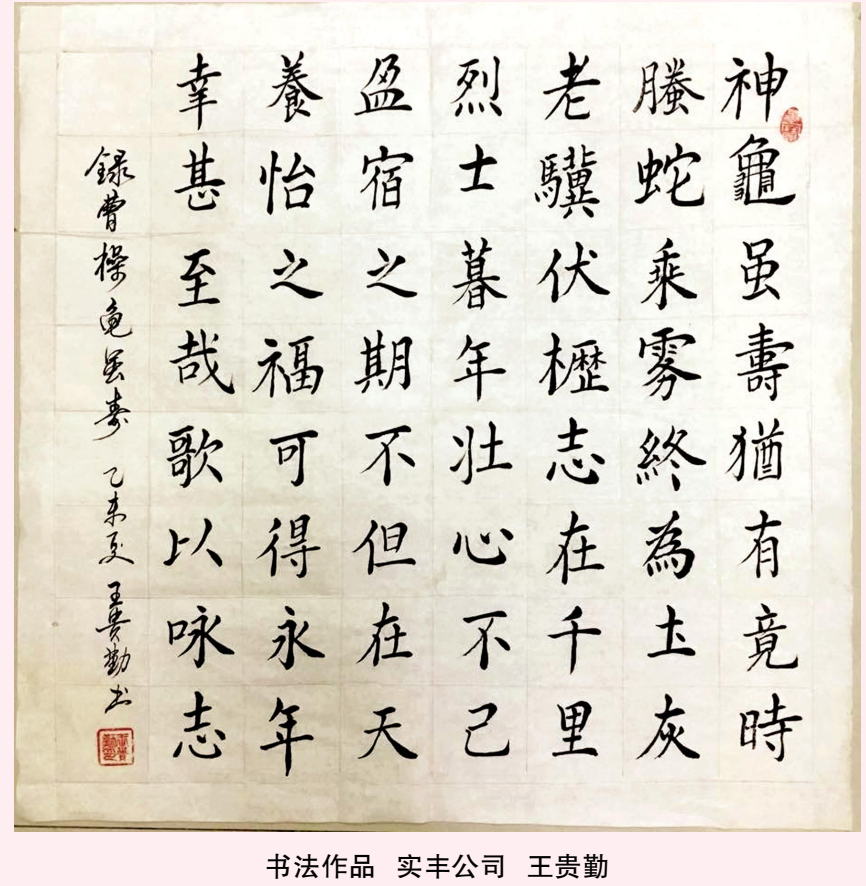 神龜虽壽猶有竟時
螣蛇乘雾終為圡灰
老驥伏櫪志在千里
烈士暮年壮心不已
盈宿之期不但在天
養怡之福可得永年
幸甚至哉歌以咏志
録曹操龟虽寿 乙未夏 王贵勤书
书法作品 实丰公司 王贵勤